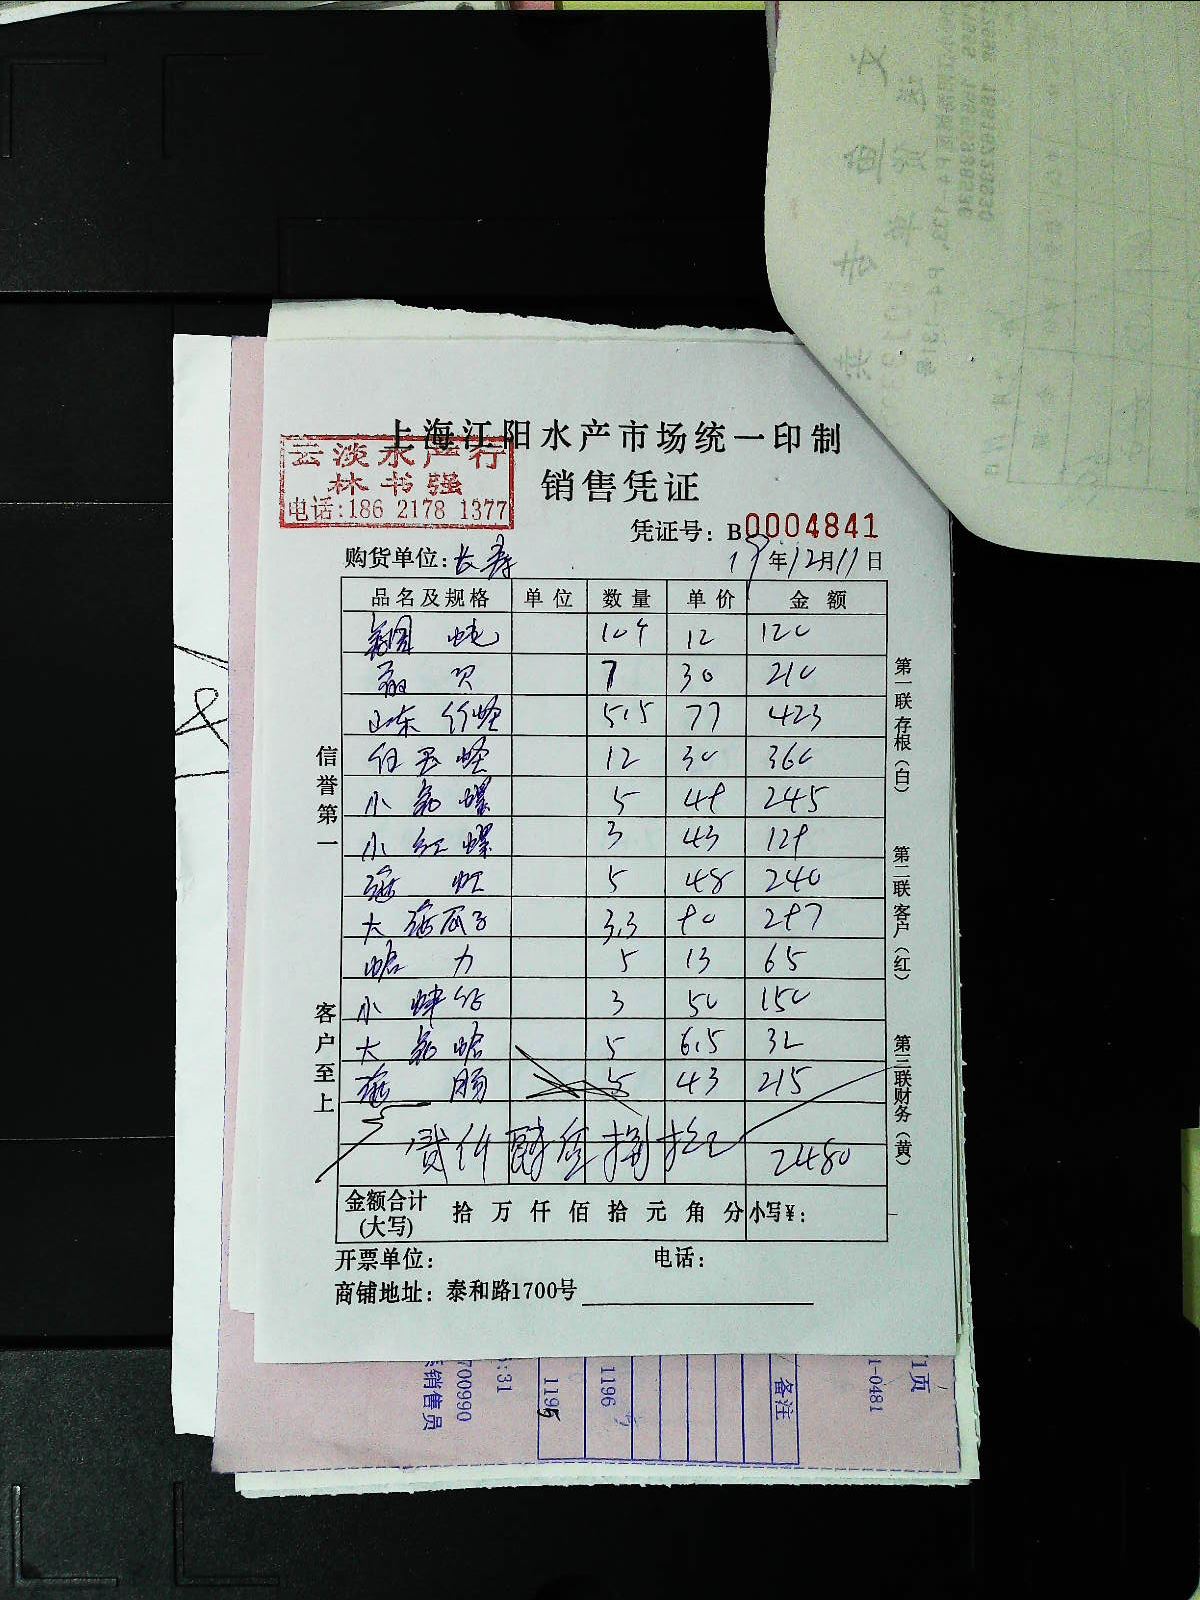 上海江阳水产市场统一印制
云淡水产行
林书强
电话:186 2178 1377
销售凭证
凭证号: B0004841
购货单位: 长寿 19年12月11日
品名及规格 单位 数量 单价 金额
12 120
7 30 210
山东 5.5 77 423
12 30 360
小 螺 5 49 245
小红螺 3 43 129
5 48 240
大海瓜子 3.3 90 297
5 13 65
小 3 50 150
大 蛤 5 6.5 32
海肠 5 43 215
贰仟肆佰捌拾元 2480
金额合计(大写) 拾 万 仟 佰 拾 元 角 分 小写¥:
开票单位: 电话:
商铺地址: 泰和路1700号
信誉第一
客户至上
第一联存根(白)
第二联客户(红)
第三联财务(黄)
1页
1-0481
备注
1196
1195
:31
700990
销售员